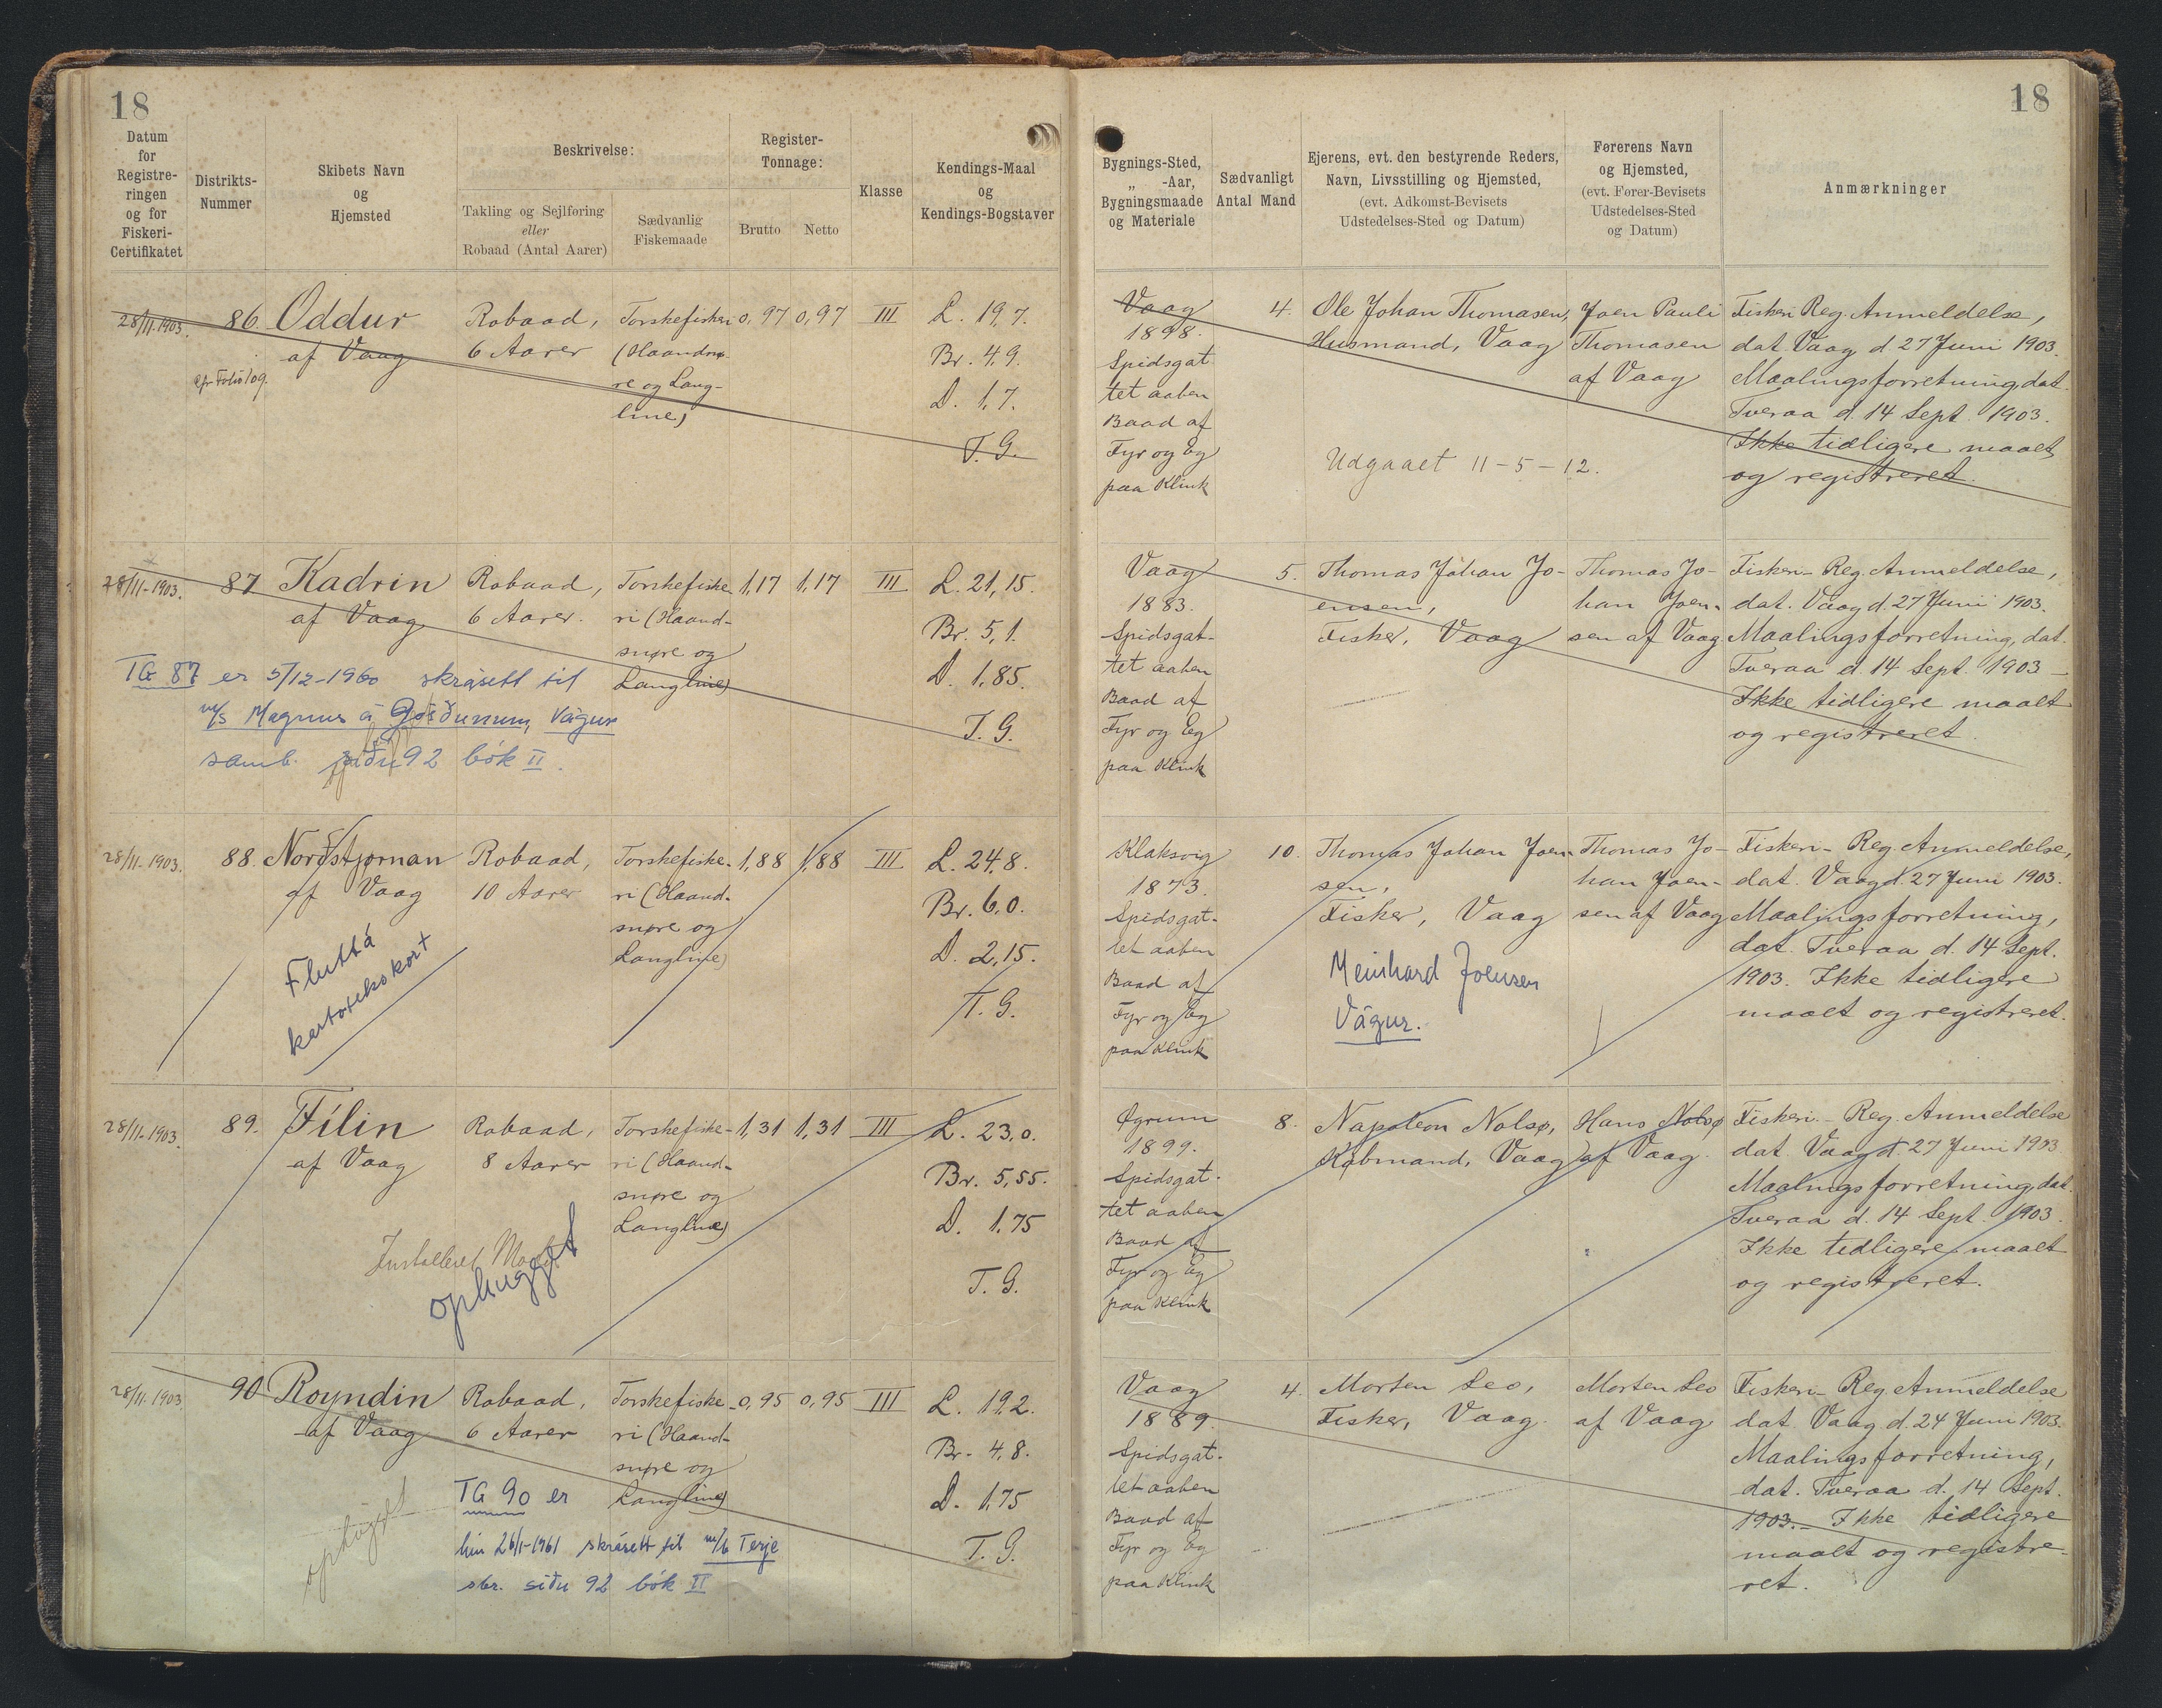 18
18
Datum
for
Registre-
ringen
og for
Fiskeri-
Certifikatet
Distrikts-
Nummer
Skibets Navn
og
Hjemsted
Beskrivelse:
Takling og Sejlføring
eller
Robaad (Antal Aarer)
Sædvanlig
Fiskemaade
Register-
Tonnage:
Brutto
Netto
Klasse
Kendings-Maal
og
Kendings-Bogstaver
Bygnings-Sted,
„ -Aar,
Bygningsmaade
og Materiale
Sædvanligt
Antal Mand
Ejerens, evt. den bestyrende Reders,
Navn, Livsstilling og Hjemsted,
(evt. Adkomst-Bevisets
Udstedelses-Sted og Datum)
Førerens Navn
og Hjemsted,
(evt. Fører-Bevisets
Udstedelses-Sted
og Datum)
Anmærkninger
28/11.1903.
86.
cfr Folio 109.
Oddur
af Vaag
Robaad,
6 Aarer
Torskefiskeri
(Haandsnø-
re og Lang-
line)
0,97
0,97
III
L. 19,7.
Br. 4,9.
D. 1,7.
T. G.
Vaag
1898.
Spidsgat
tet aaben
Baad af
Fyr og Eg
paa Klink
4.
Ole Johan Thomasen,
Husmand, Vaag
Udgaaet 11-5-12.
Joen Pauli
Thomasen
af Vaag
Fiskeri Reg. Anmeldelse,
dat. Vaag d 27 Juni 1903.
Maalingsforretning, dat.
Tveraa d. 14 Sept. 1903.
Ikke tidligere maalt
og registreret.
28/11-1903.
87
Kadrin
af Vaag
Robaad,
6 Aarer.
Torskefiske-
ri (Haand-
snøre og
Langline)
1,17
1,17
III
L. 21,15.
Br. 5,1.
D. 1,85.
T. G.
TG 87 er 5/12-1960 skrásett til
m/s Magnus á Gørðunum, Vágur
samb. síðu 92 bók II.
Vaag
1883.
Spidsgat-
tet aaben
Baad af
Fyr og Eg
paa Klink
5.
Thomas Johan Jo-
ensen,
Fisker, Vaag
Thomas Jo-
han Joen-
sen af Vaag
Fiskeri- Reg. Anmeldelse,
dat. Vaag d. 27 Juni 1903.
Maalingsforretning, dat.
Tveraa d. 14 Sept. 1903 -
Ikke tidligere maalt
og registreret.
28/11-1903.
88.
Norðstjørnan
af Vaag
Robaad,
10 Aarer
Torskefiske-
ri (Haand-
snøre og
Langline)
1,88
1,88
III
L. 24,8.
Br. 6,0.
D. 2,15.
T. G.
Flutt á
kartotekskort
Klaksvig
1873.
Spidsgat-
tet aaben
Baad af
Fyr og Eg
paa Klink
10.
Thomas Johan Joen-
sen,
Fisker, Vaag
Meinhard Joensen
Vágur.
Thomas Jo-
han Joen-
sen af Vaag
Fiskeri- Reg. Anmeldelse,
dat. Vaag d. 27 Juni 1903.
Maalingsforretning,
dat. Tveraa d. 14 Sept.
1903. Ikke tidligere
maalt og registreret.
28/11-1903.
89.
Fílin
af Vaag
Robaad,
8 Aarer
Torskefiske-
ri (Haand-
snøre og
Langline)
1,31
1,31
III
L. 23,0.
Br. 5,55.
D. 1,75
T. G.
Installeret Motor
ophugget
Øgrum
1899.
Spidsgat-
tet aaben
Baad af
Fyr og Eg
paa Klink
8.
Napoleon Nolsø,
Købmand, Vaag
Hans Nolsø
af Vaag.
Fiskeri- Reg. Anmeldelse
dat. Vaag d. 27 Juni 1903
Maalingsforretning, dat.
Tveraa d. 14 Sept. 1903.
Ikke tidligere maalt
og registreret.
28/11.1903.
90
Royndin
af Vaag
Robaad,
6 Aarer
Torskefiske-
ri (Haand-
snøre og
Langline)
0,95
0,95
III
L. 19,2.
Br. 4,8.
D. 1,75
T. G.
ophugget
TG 90 er
hin 26/1-1961 skrásett til m/b Terje
sbr. síðu 92 bók II
Vaag
1889.
Spidsgat-
tet aaben
Baad af
Fyr og Eg
paa Klink
4.
Morten Leo,
Fisker, Vaag.
Morten Leo
af Vaag
Fiskeri- Reg. Anmeldelse
dat. Vaag d. 24 Juni 1903.
Maalingsforretning,
dat. Tveraa d. 14 Sept.
1903.- Ikke tidligere
maalt og registre-
ret.